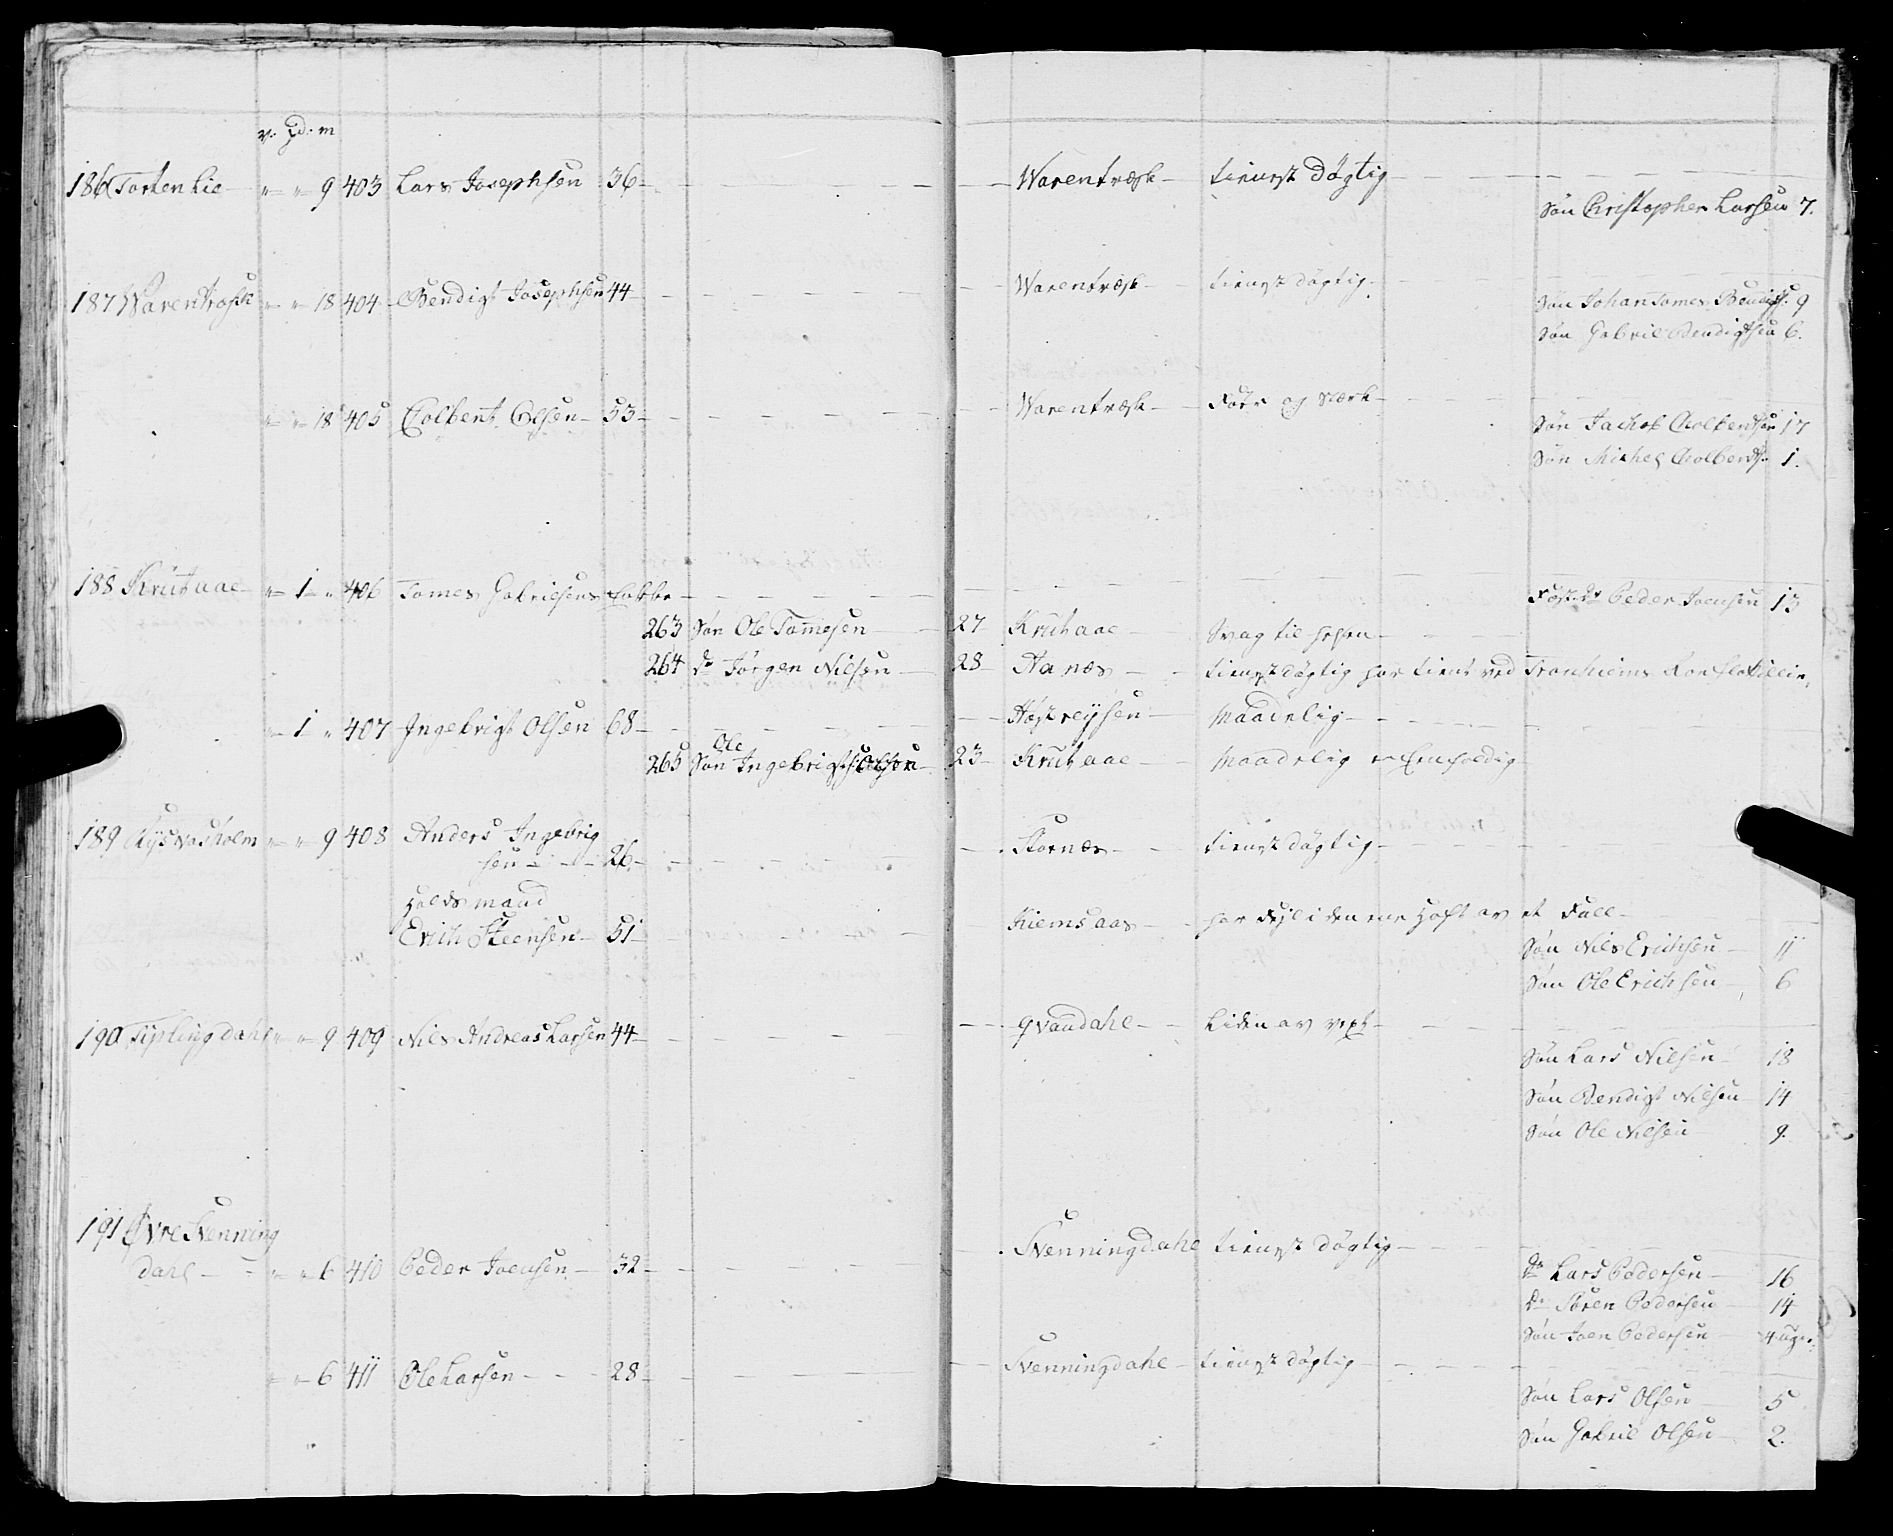 v. pd. m
186 Torten Lie - " " 9 403 Lars Josephsen 36 - Warentræsk - tienst døgtig -
Søn Christopher Larsen 7.
187 Warentræsk " " 18 404 Bendigt Josephsen 44 - Warentræsk - tienst døgtig -
Søn Johan Tomes Bendigts. 9
Søn Gabriel Bendigtsen 6.
" " 18 405 Colbent Olsen - 53 - Warentræsk - Før og Stærk -
Søn Jachob Colbentsen 17
Søn Michel Colbents. 1.
188 Krutaae - " 1 " 406 Tomes Gabrielsens Enke - Peder Joensen 13
263 Søn Ole Tomesen - 27 Krutaae - Svag til
264 do Jørgen Nilsen - 28 - Aanæs - tienst døgtig har tient ved Tronhiems
" 1 " 407 Ingebrigt Olsen 68 - Høstreysen - Maadelig -
Ole
265 Søn Ingebrigts. Olsen - 23 - Krutaae - Maadelig
189 " " 9 408 Anders Ingebrig
sen - 26 - Stornæs - tienst døgtig -
Holdsmand
Erich Steensen - 51 - Kiemsaas - har Fejl i den ene Haft av et Fall -
Søn Nils Erichsen - 11
Søn Ole Erichsen - 6
190 Tiplingdahl " " 9 409 Nils Andreas Larsen 44 - Qvandahl - Liden av vext -
Søn Lars Nilsen - 18
Søn Bendigt Nilsen 14
Søn Ole Nilsen 9.
191 Øvre Svenning
dahl - " " 6 410 Peder Joensen - 32 - Svenningdahl tienst døgtig -
do Lars Pedersen - 16
do Søren Pedersen - 14
Søn Joen Pedersen - 4 uger.
" " 6 411 Ole Larsen - 28 - Svenningdahl - tienst døgtig -
Søn Lars Olsen - 5
Søn Gabriel Olsen - 2.